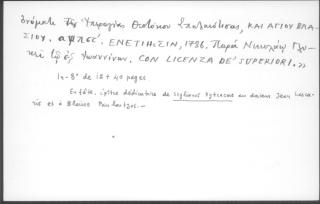 ὀνόματι τῆς Ὑπεραγίας Θεοτόκου Σπηλαιωτίσσης, ΚΑΙ ΑΓΙΟΥ ΒΛΑ-
ΣΙΟΥ. αψπϛʹ. ΕΝΕΤΙΗΣΙΝ, 1786. Παρὰ Νικολάῳ Γλυ-
κεῖ τῷ ἐξ Ἰωαννίνων. CON LICENZA DE' SUPERIORI. »
In-8° de 12 + 40 pages
En tête, épître dédicatoire de au docteur Jean Lasca-
ris et à Blaise